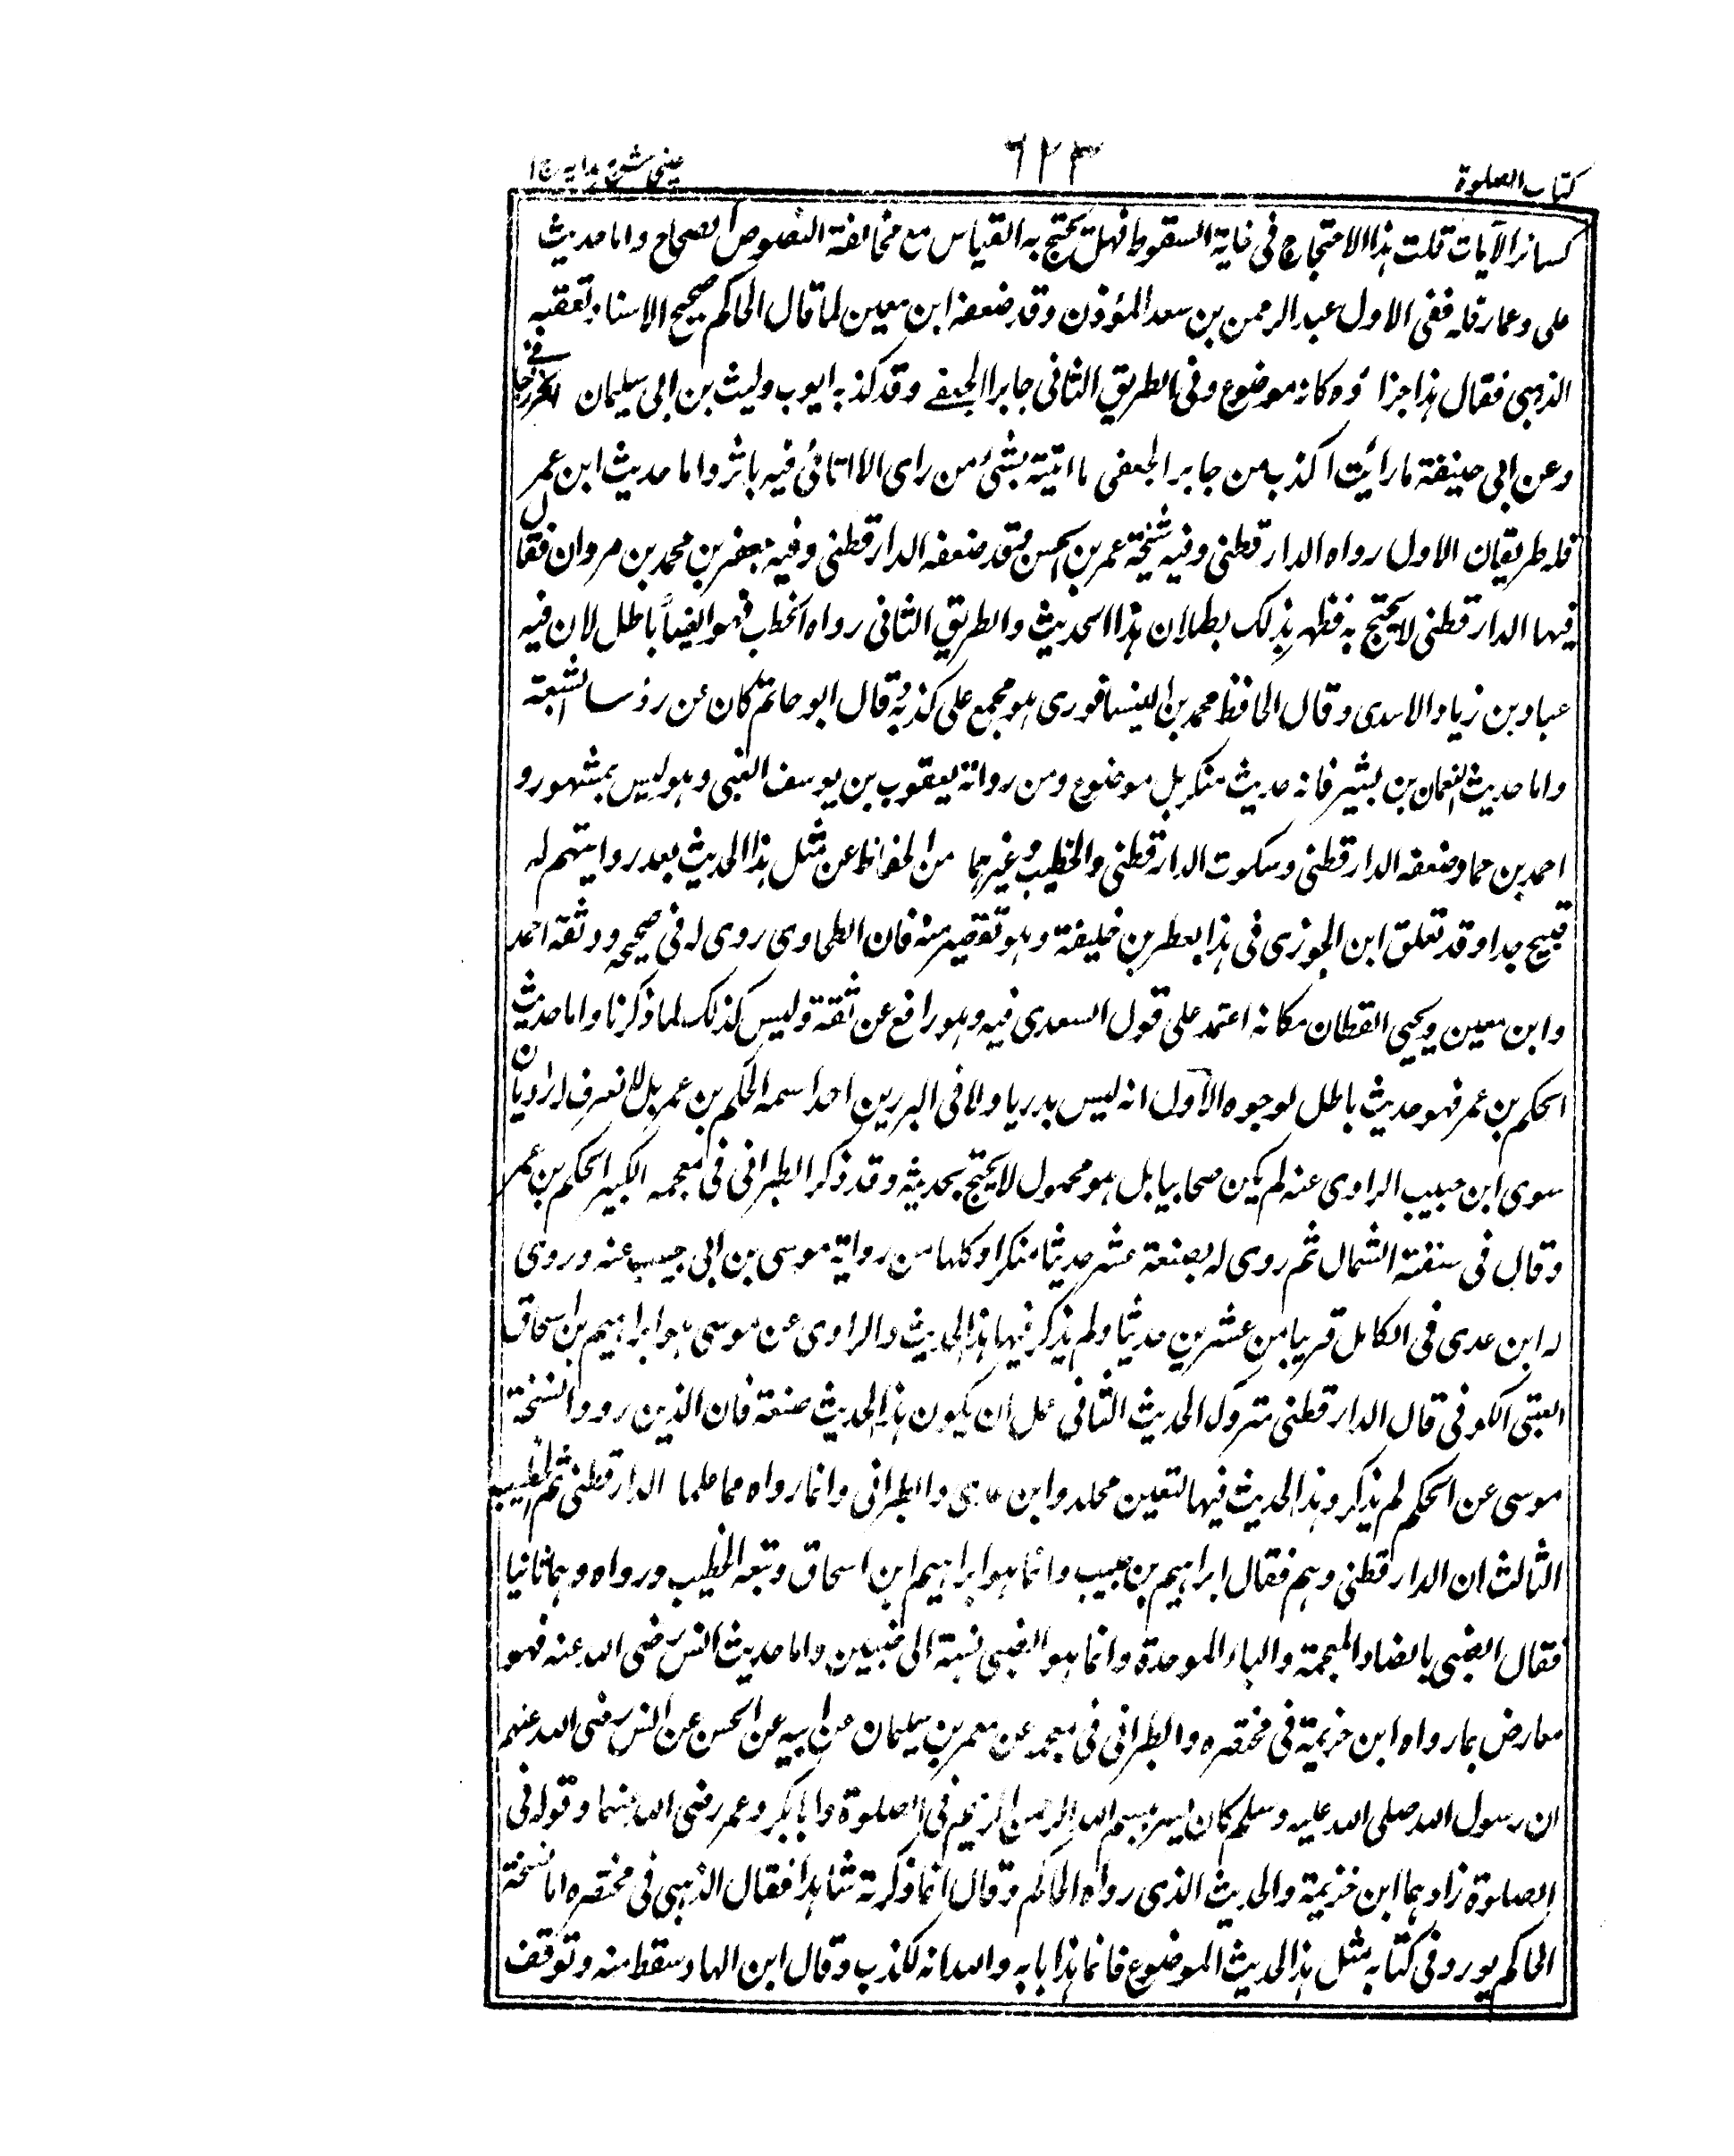 كتاب الصلوة
٦٢٣
عينى شرح هدايه ج ١
كسائر الآيات قلت هذا الاحتجاج فى غاية السقوط فهل يحتج به القياس مع مخالفة النصوص الصحاح واما حديث
على وعمار قلنا ففى الاول عبد الرحمن بن سعد المؤذن وقد ضعفه ابن معين لما قال الحاكم صحيح الاسناد تعقبه
الذهبى فقال هذا جزاؤه كانه موضوع وفى الطريق الثانى جابر الجعفى وقد كذبه ايوب وليث بن ابى سليمان
وعن ابى حنيفة ما رأيت اكذب من جابر الجعفى ما اتيته بشئ من راى الا اتانى فيه باثر واما حديث ابن عمر
فله طريقان الاول رواه الدارقطنى وفيه شيخه عمر بن الحسن وقد ضعفه الدارقطنى وفيه جعفر بن محمد بن مروان فقال
فيها الدارقطنى لا يحتج به فظهر بذلك بطلان هذا الحديث والطريق الثانى رواه الخطيب فهو ايضاً باطل لان فيه
عباد بن زياد الاسدى وقال الحافظ محمد بن النيسافورى هو مجمع على كذبه وقال ابو حاتم كان من رؤسا الشيعة
واما حديث النعمان بن بشير فانه حديث منكر بل موضوع ومن رواته يعقوب بن يوسف الضبى وهو ليس بمشهور و
احمد بن حماد ضعفه الدارقطنى وسكوت الدارقطنى والخطيب وغيرهما من الحفاظ عن مثل هذا الحديث بعد روايتهم له
قبيح جدا وقد تعلق ابن الجوزى فى هذا بعطر بن خليفة وهو تقصير منه فان الطحاوى روى له فى صحيحه ووثقه احمد
وابن معين ويحيى القطان مكانه اعتمد على قول السعدى فيه وهو رافع عن ثقة وليس كذلك لما ذكرنا واما حديث
الحكم بن عمر فهو حديث باطل لوجوه الاول انه ليس بدريا ولا فى البدريين احد اسمه الحكم بن عمر بل لا نعرف له راويان
سوى ابن حبيب الراوى عنه لم يكن صحابيا بل هو مجهول لا يحتج بحديثه وقد ذكر الطبرانى فى معجمه الكبير الحكم بن عمر
وقال فى سنفته الشمال ثم روى له بضعة عشر حديثا منكرا وكلها من رواية موسى بن ابى حبيب عنه وروى
له ابن عدى فى الكامل قريبا من عشرين حديثا ولم يذكر فيها هذا الحديث والراوى عن موسى هو ابراهيم بن اسحاق
العبتى الكوفى قال الدارقطنى متروك الحديث الثانى على ان يكون هذا الحديث صنعة فان الذين رووا نسخة
موسى عن الحكم لم يذكروا هذا الحديث فيها لتعين محلد وابن عدى والطبرانى وانما رواه مما علما الدارقطنى ثم الخطيب
الثالث ان الدارقطنى وهم فقال ابراهيم بن حبيب وانما هو ابراهيم ابن اسحاق وتبعه الخطيب ورواه وهما ثانيا
فقال الضبى بالضاد المعجمة والباء الموحدة وانما هو الضبى نسبة الى ضبيين واما حديث انس رضى الله عنه فهو
معارض بما رواه ابن خزيمة فى مختصره والطبرانى فى معجمه عن معمر بن سليمان عن ابيه عن الحسن عن انس رضى الله عنهم
ان رسول الله صلى الله عليه وسلم كان يسر بسم الله الرحمن الرحيم فى الصلوة وابا بكر وعمر رضى الله عنهما وقوله فى
الصلوة زادهما ابن خزيمة والحديث الذى رواه الحاكم وقال انما ذكرته شاهدا فقال الذهبى فى مختصره اما نسخة
الحاكم يورد فى كتابه مثل هذا الحديث الموضوع فانما هذا بابه والله انه لكذب وقال ابن الهاد سقط منه وتوقف